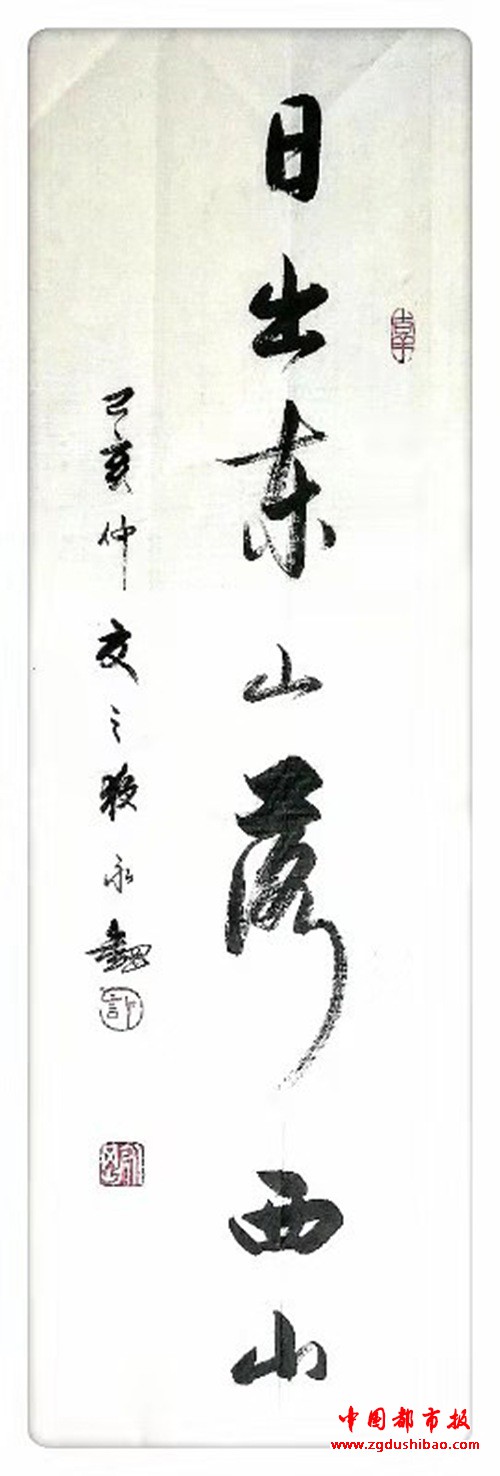 日出东山落西山
己亥仲夏之夜永
中国都市报
www.zgdushibao.com